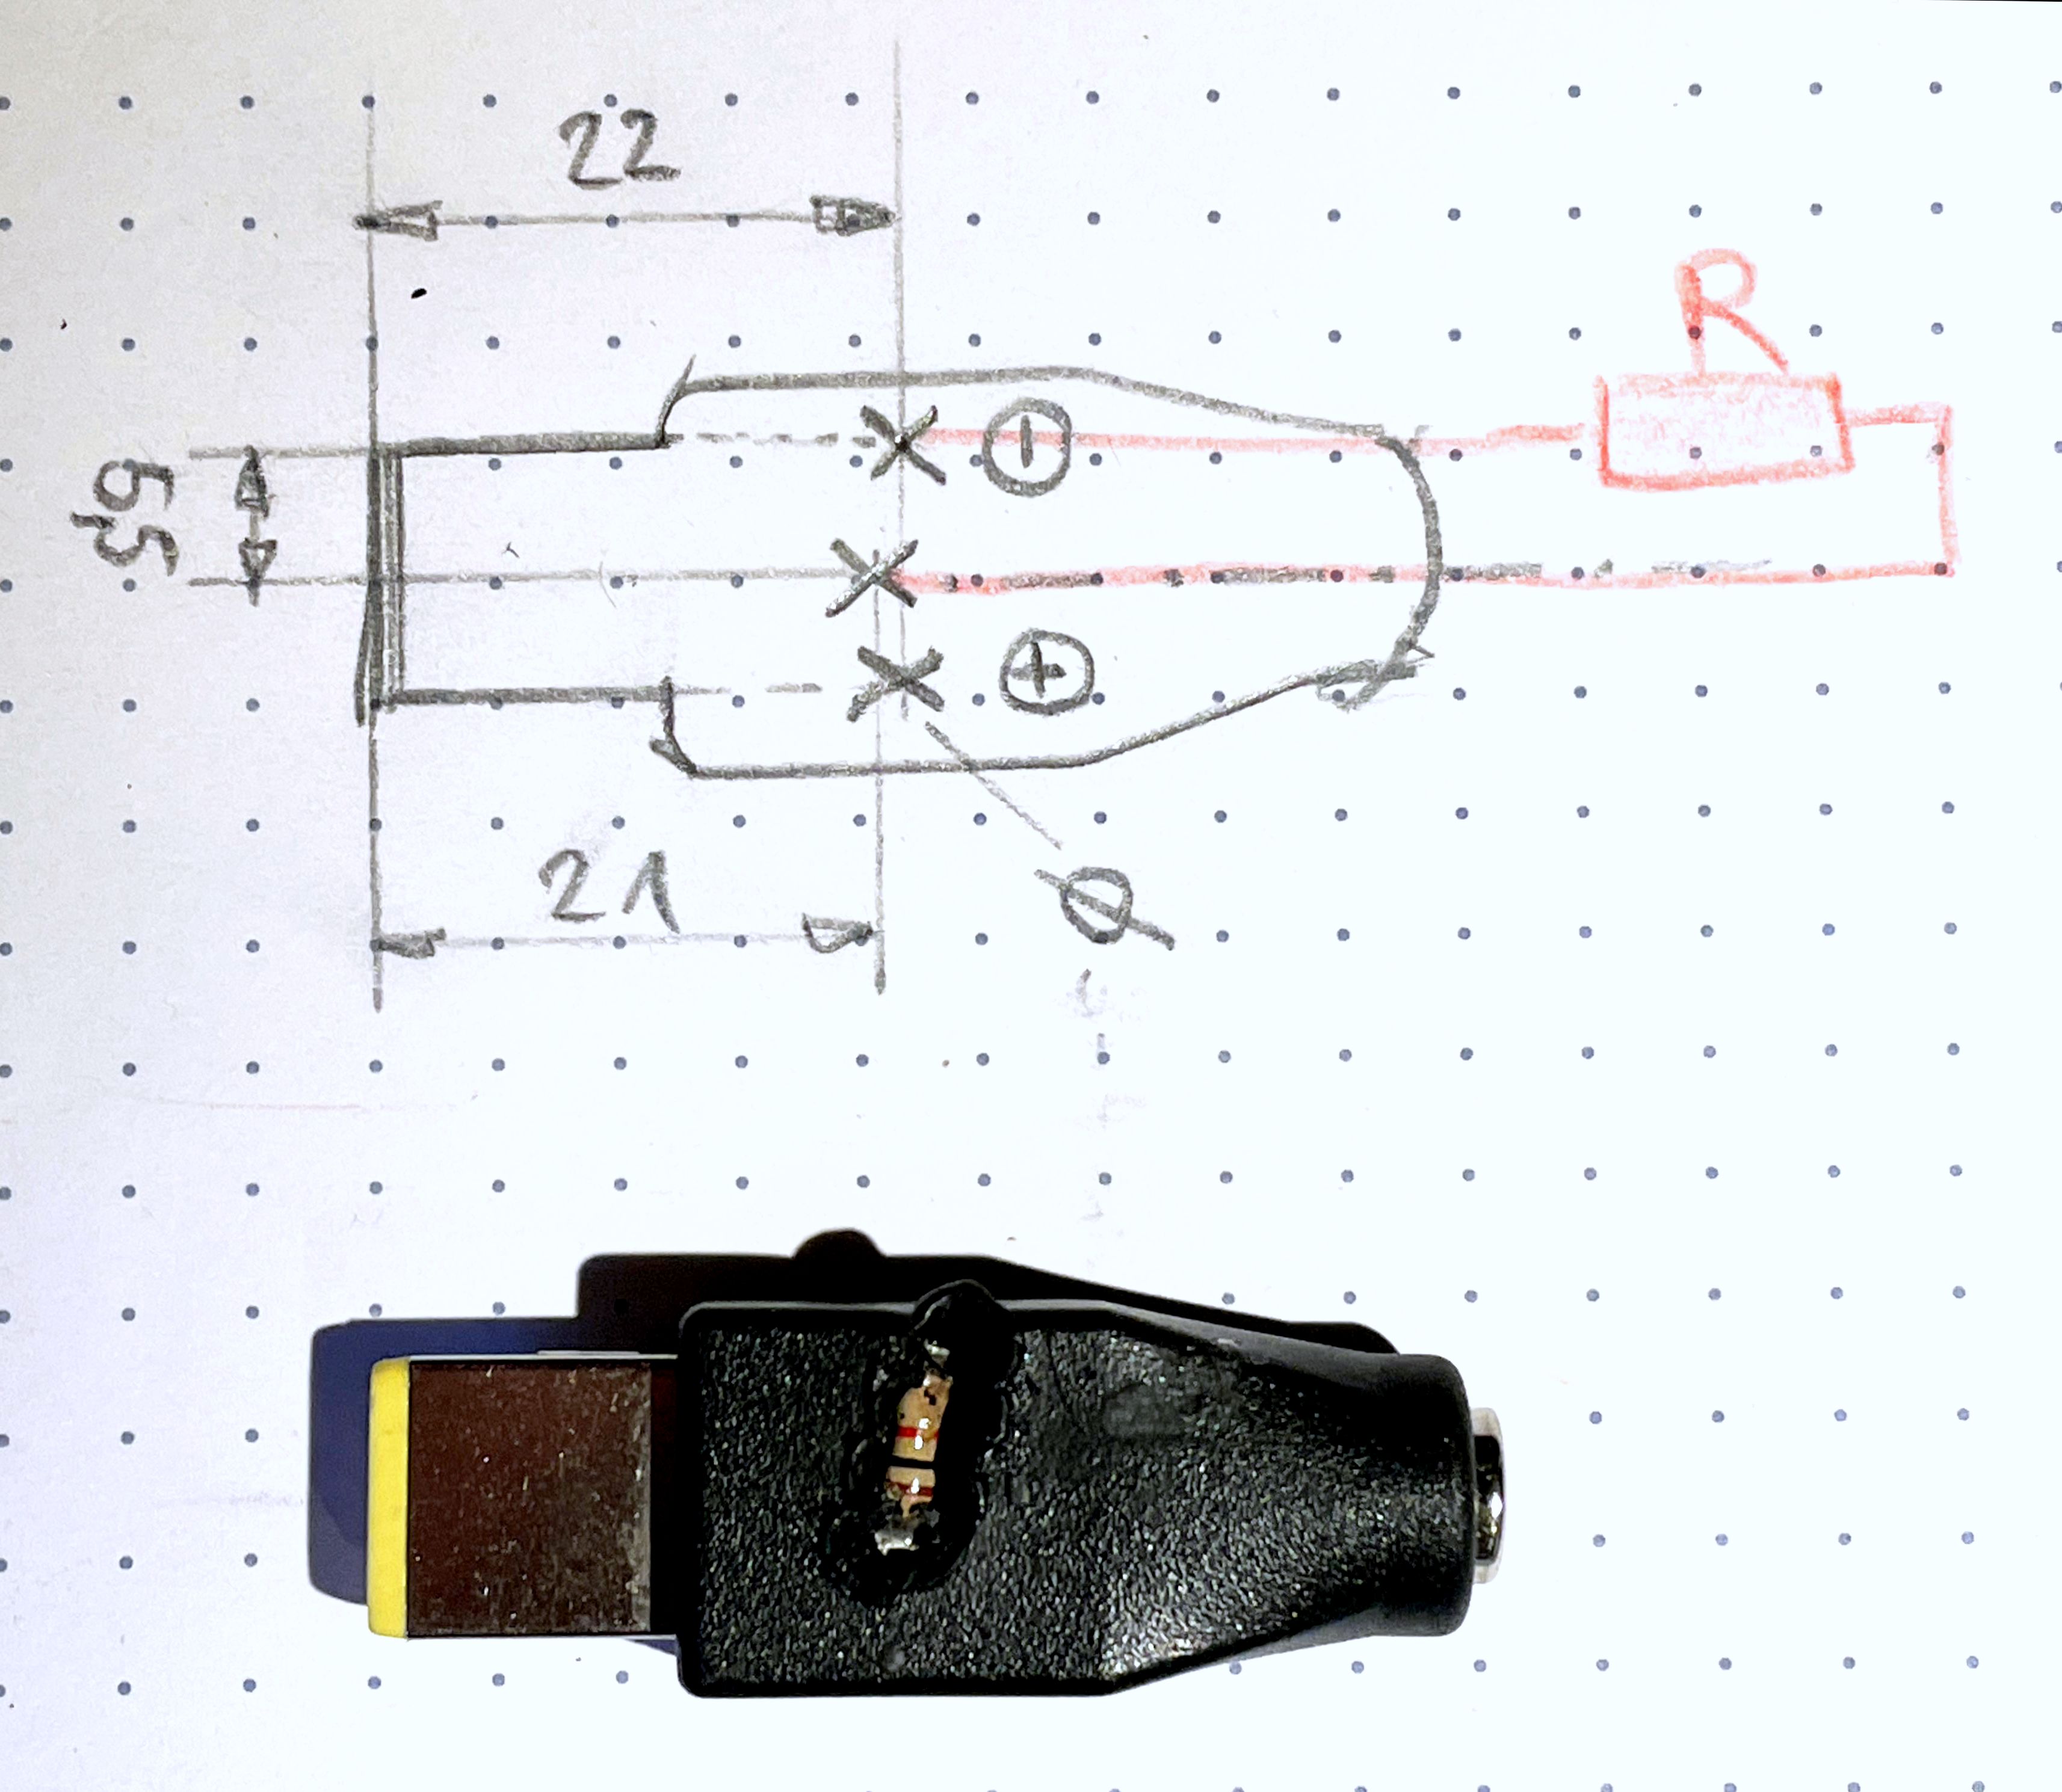 22
R
5,5
⊖
⊕
21
Ø